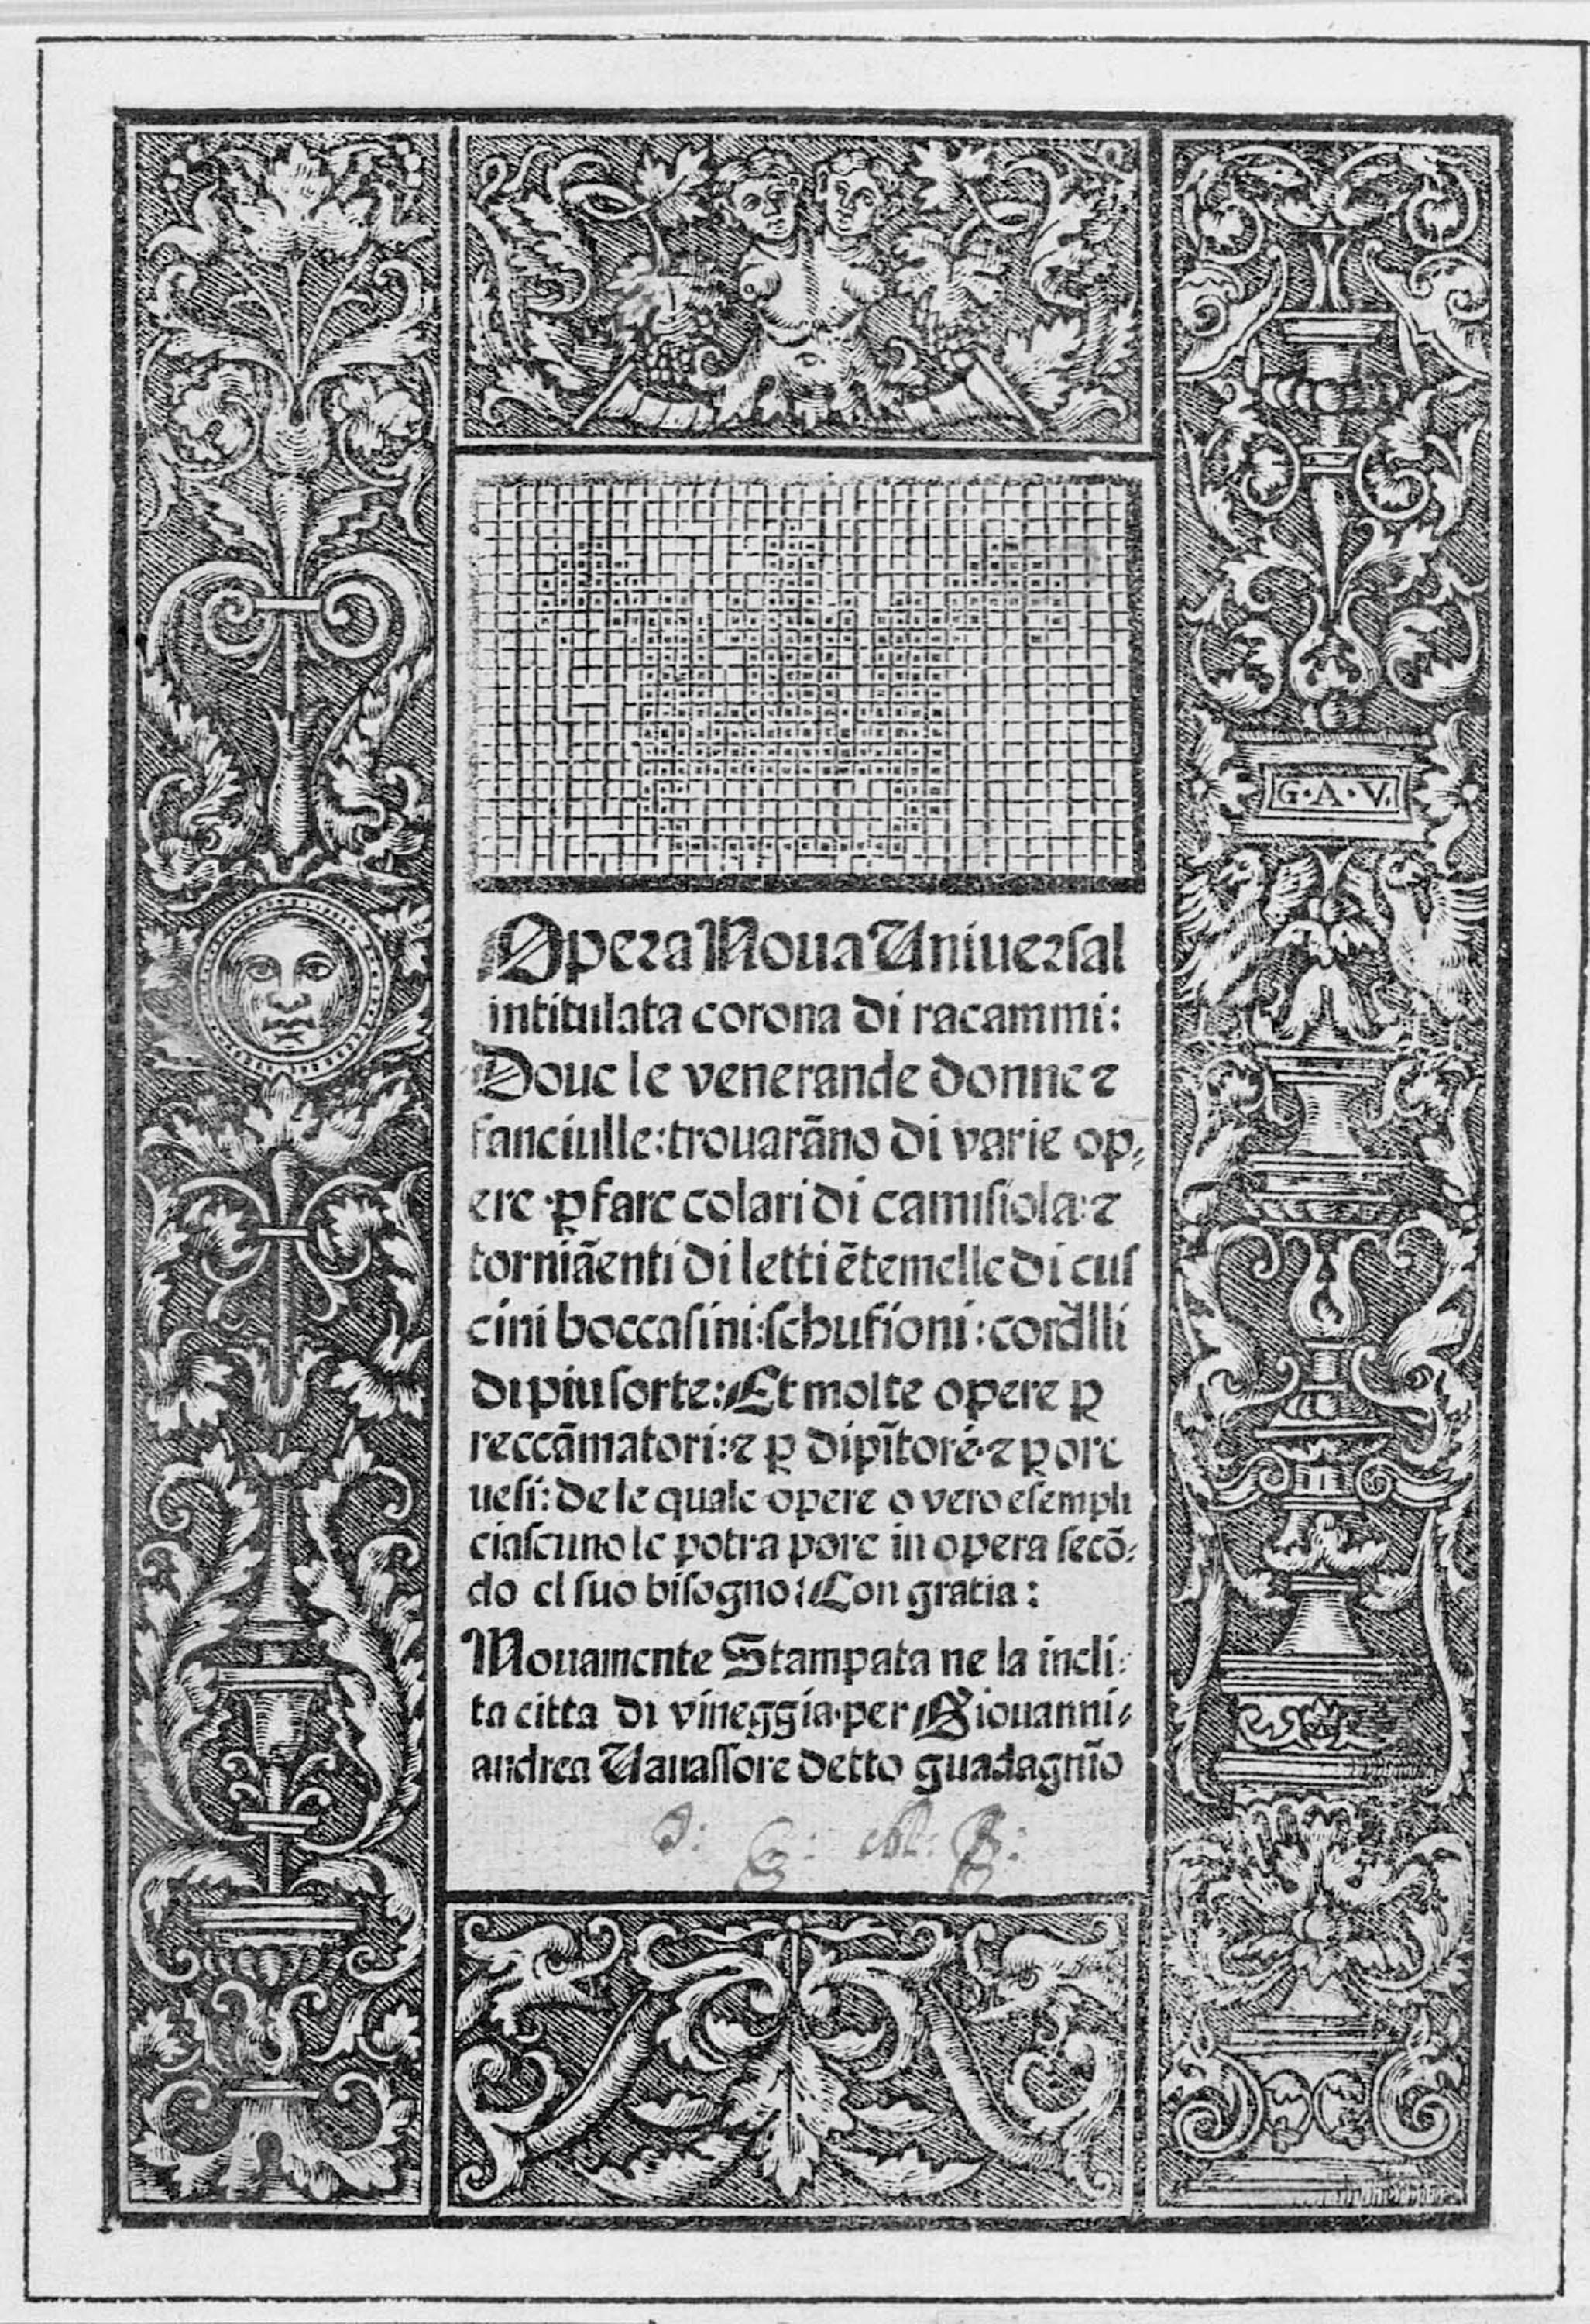 G·A·V.
Opera Noua Uniuersal
intitulata corona di racammi:
Doue le venerande donne ⁊
fanciulle: trouarãno di varie op⸗
ere · ꝑ fare colari di camisiola: ⁊
torniãenti di letti ẽtemelle di cus
cini boccasini: schufioni: cordlli
di piu sorte: Et molte opere ꝑ
reccãmatori: ⁊ ꝑ dipĩtore · ⁊ ꝑ ore
uesi: de le quale opere o vero esempli
ciascuno le potra pore in opera secõ⸗
do el suo bisogno: Con gratia:
Nouamente Stampata ne la incli⸗
ta citta di vineggia · per Giouanni⸗
andrea Uauassore detto guadagnĩo